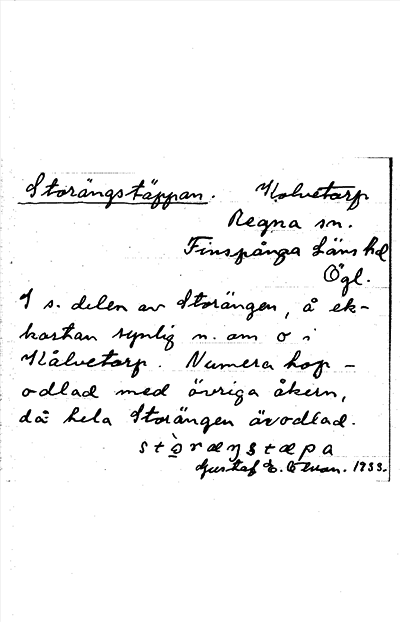 Storängstäppan. Kolvetorp
Regna sn.
Finspånga Läns hd
Ögl.
I s. delen av Storängen, å ek-
backan synlig n. om o i
Kålvetorp. Numera hop-
odlad med övriga åkern,
då hela Storängen är odlad.
stòræŋstæpa
Gustaf E. 1933.